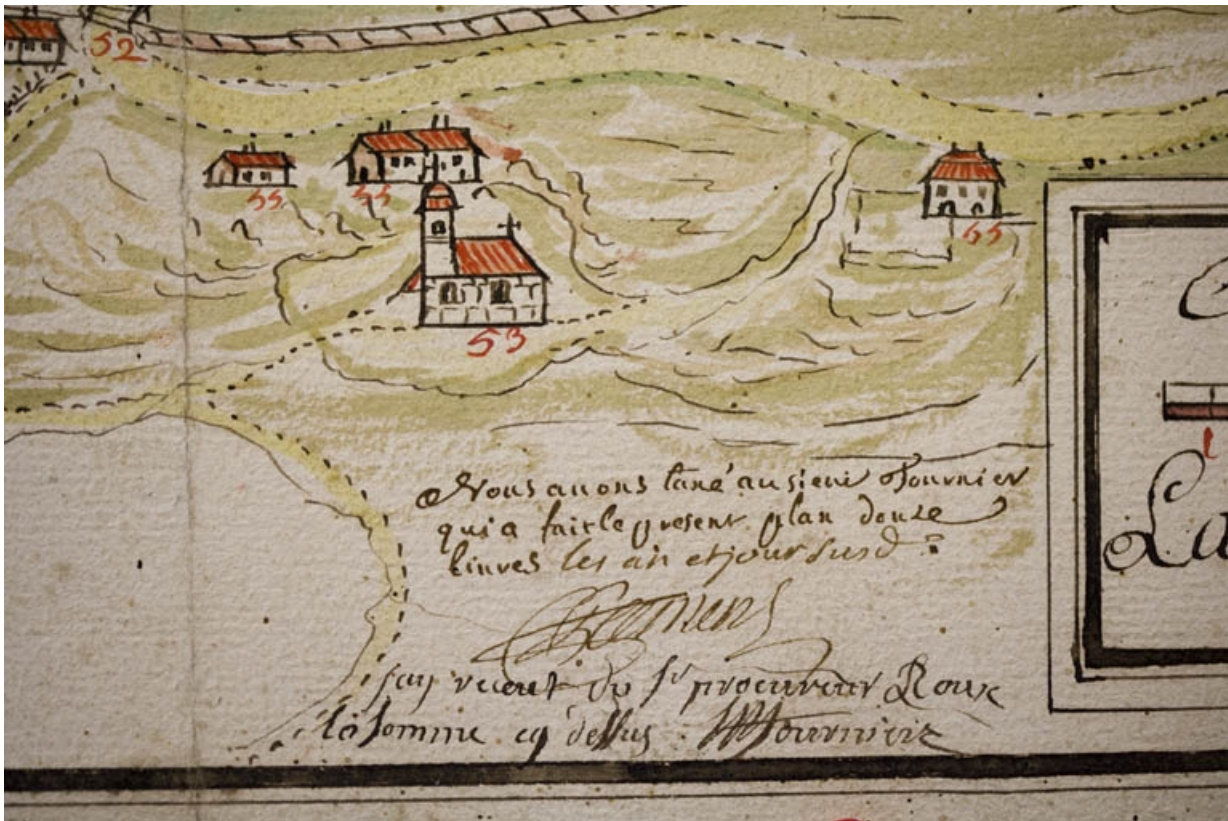 52
55
55
55
53
1
Nous auons taxé au sieur Fournier
qui a fait le present plan douze
liures les an et jour susd.
jay receut du Sr procureur Roux
la somme cy dessus. Fournier